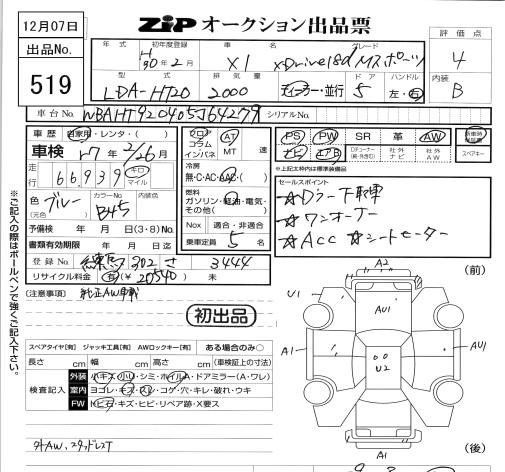 12月07日
ZiP オークション出品票
出品No.
519
年式 初年度登録 車名 グレード
H30年2月 X1 xDrive18d Mスポーツ
評価点
4
型式 排気量 ドア ハンドル
LDA-HT20 2000 ディーラー・並行 5 左・右
内装
B
車台No. WBAHT920405J64279 シリアルNo.
車歴 自家用・レンタ・( )
車検 R7年2/26月
走行 66,939 キロ マイル
色 (元色) ブルー カラーNo. B45 内装色
予備検 年 月 日(3・8)No.
書類有効期限 年 月 日迄
登録No. 練馬 302 さ 3444
リサイクル料金 有(¥ 20540 )
フロア コラム インパネ AT MT 速
冷房
無・C・AC・AAC・( )
燃料
ガソリン・軽油・電気・その他( )
Nox 適合・非適合
乗車定員 5 名
PS PW SR 革 AW 新車時保証書
ナビ エアB DFコーナー 社外ナビ 社外AW スペアキー
※上記太枠内は標準装備品
セールスポイント
☆Dラー下取車
☆ワンオーナー
☆Acc ☆シートヒーター
※ご記入の際はボールペンで強くご記入下さい。
(注意事項) 純正AW車載
初出品
スペアタイヤ[有] ジャッキ工具[有] AWロックキー[有] ある場合のみ○
長さ cm 幅 cm 高さ cm (車検証上の寸法)
検査記入
外装 小キズ・小凹・シミ・ホイルA・ドアミラー(A・ワレ)
室内 ヨゴレ・キズ・スレ・コゲ・穴・キレ・破れ・ウキ
FW トビ石・キズ・ヒビ・リペア跡・X要ス
外AW、スタッドレスT
(前)
A2
U1
AU1
A1
U2
AU1
A1
(後)